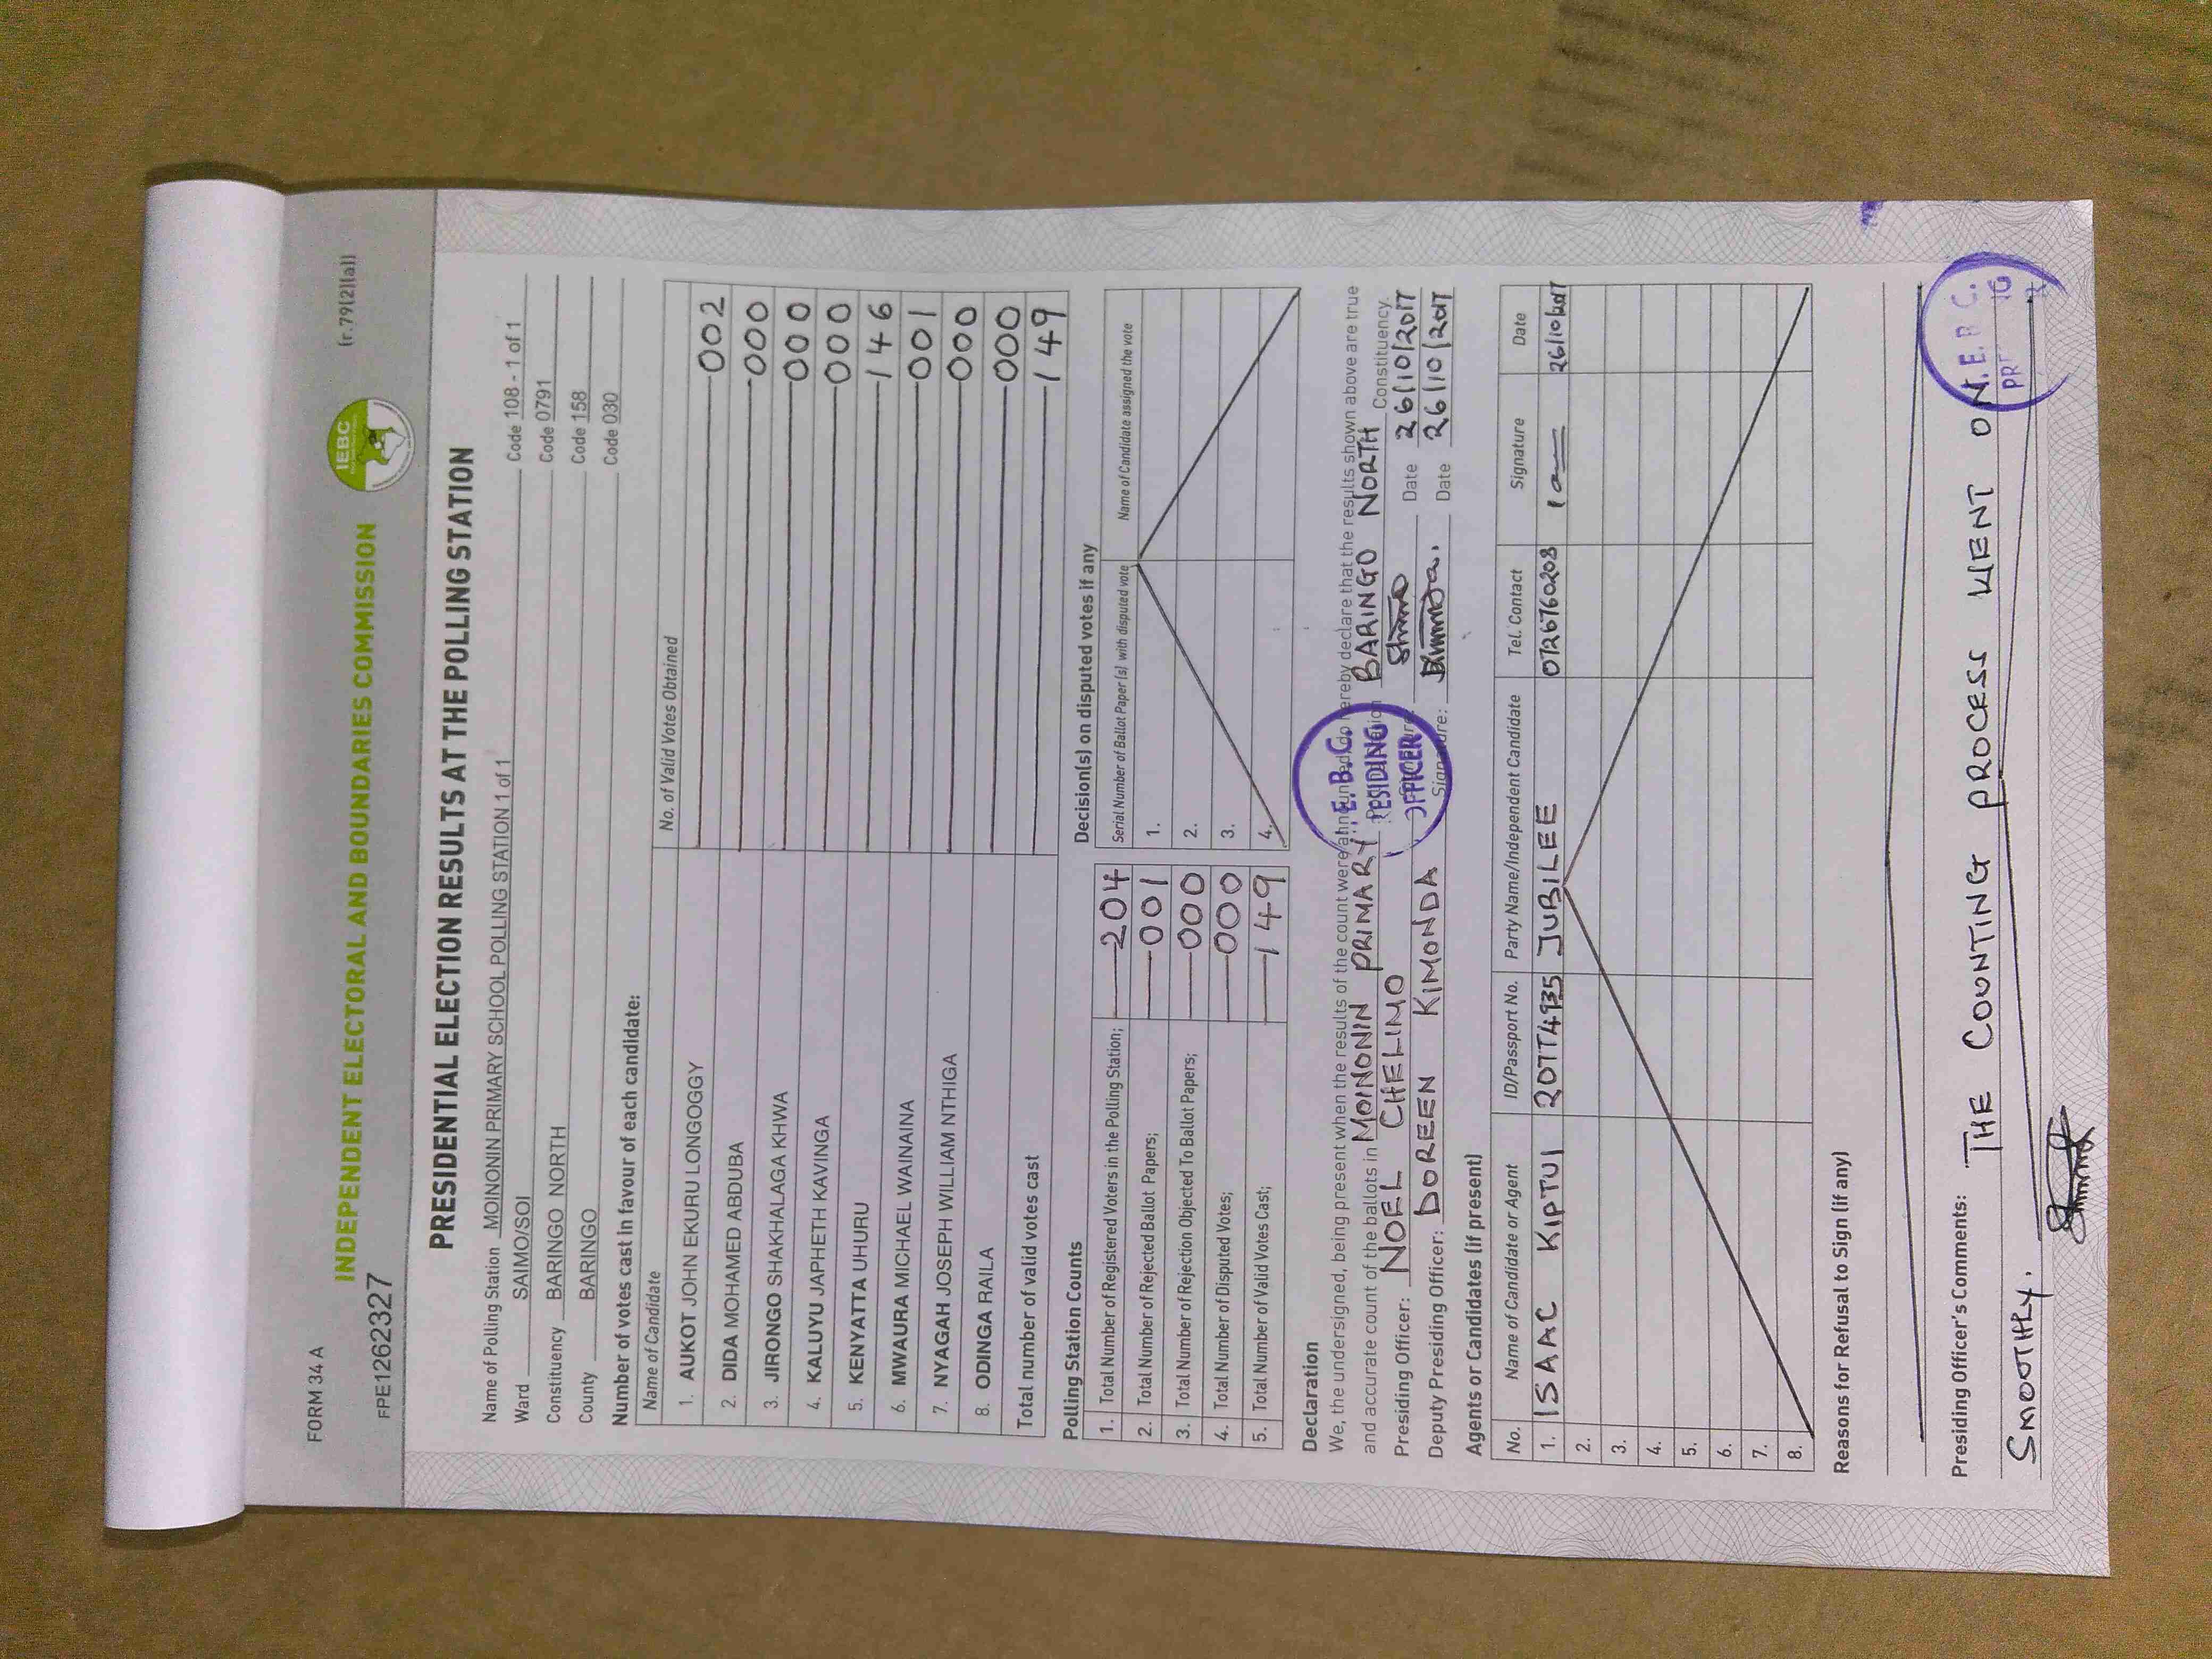 FORM 34 A
(r.79(2)(a))
IEBC
INDEPENDENT ELECTORAL AND BOUNDARIES COMMISSION
FPE1262327
PRESIDENTIAL ELECTION RESULTS AT THE POLLING STATION
Name of Polling Station MOINONIN PRIMARY SCHOOL POLLING STATION 1 of 1 Code 108 - 1 of 1
Ward SAIMO/SOI Code 0791
Constituency BARINGO NORTH Code 158
County BARINGO Code 030
Number of votes cast in favour of each candidate:
Name of Candidate No. of Valid Votes Obtained
1. AUKOT JOHN EKURU LONGOGGY 002
2. DIDA MOHAMED ABDUBA 000
3. JIRONGO SHAKHALAGA KHWA 000
4. KALUYU JAPHETH KAVINGA 000
5. KENYATTA UHURU 146
6. MWAURA MICHAEL WAINAINA 001
7. NYAGAH JOSEPH WILLIAM NTHIGA 000
8. ODINGA RAILA 000
Total number of valid votes cast 149
Polling Station Counts
1. Total Number of Registered Voters in the Polling Station; 204
2. Total Number of Rejected Ballot Papers; 001
3. Total Number of Rejection Objected To Ballot Papers; 000
4. Total Number of Disputed Votes; 000
5. Total Number of Valid Votes Cast; 149
Decision(s) on disputed votes if any
Serial Number of Ballot Paper(s) with disputed vote Name of Candidate assigned the vote
1.
2.
3.
4.
Declaration
We, the undersigned, being present when the results of the count were announced, do hereby declare that the results shown above are true
and accurate count of the ballots in MOINONIN PRIMARY BARINGO NORTH Constituency.
Presiding Officer: NOEL CHELIMO Date 26/10/2017
Deputy Presiding Officer: DOREEN KIMONDA Signature: Date 26/10/2017
I.E.B.C.
PRESIDING
OFFICER
Agents or Candidates (if present)
No. Name of Candidate or Agent ID/Passport No. Party Name/Independent Candidate Tel. Contact Signature Date
1. ISAAC KIPTUI 20774935 JUBILEE 0726760208 26/10/2017
2.
3.
4.
5.
6.
7.
8.
Reasons for Refusal to Sign (if any)
Presiding Officer's Comments: THE COUNTING PROCESS WENT ON
SMOOTHLY.